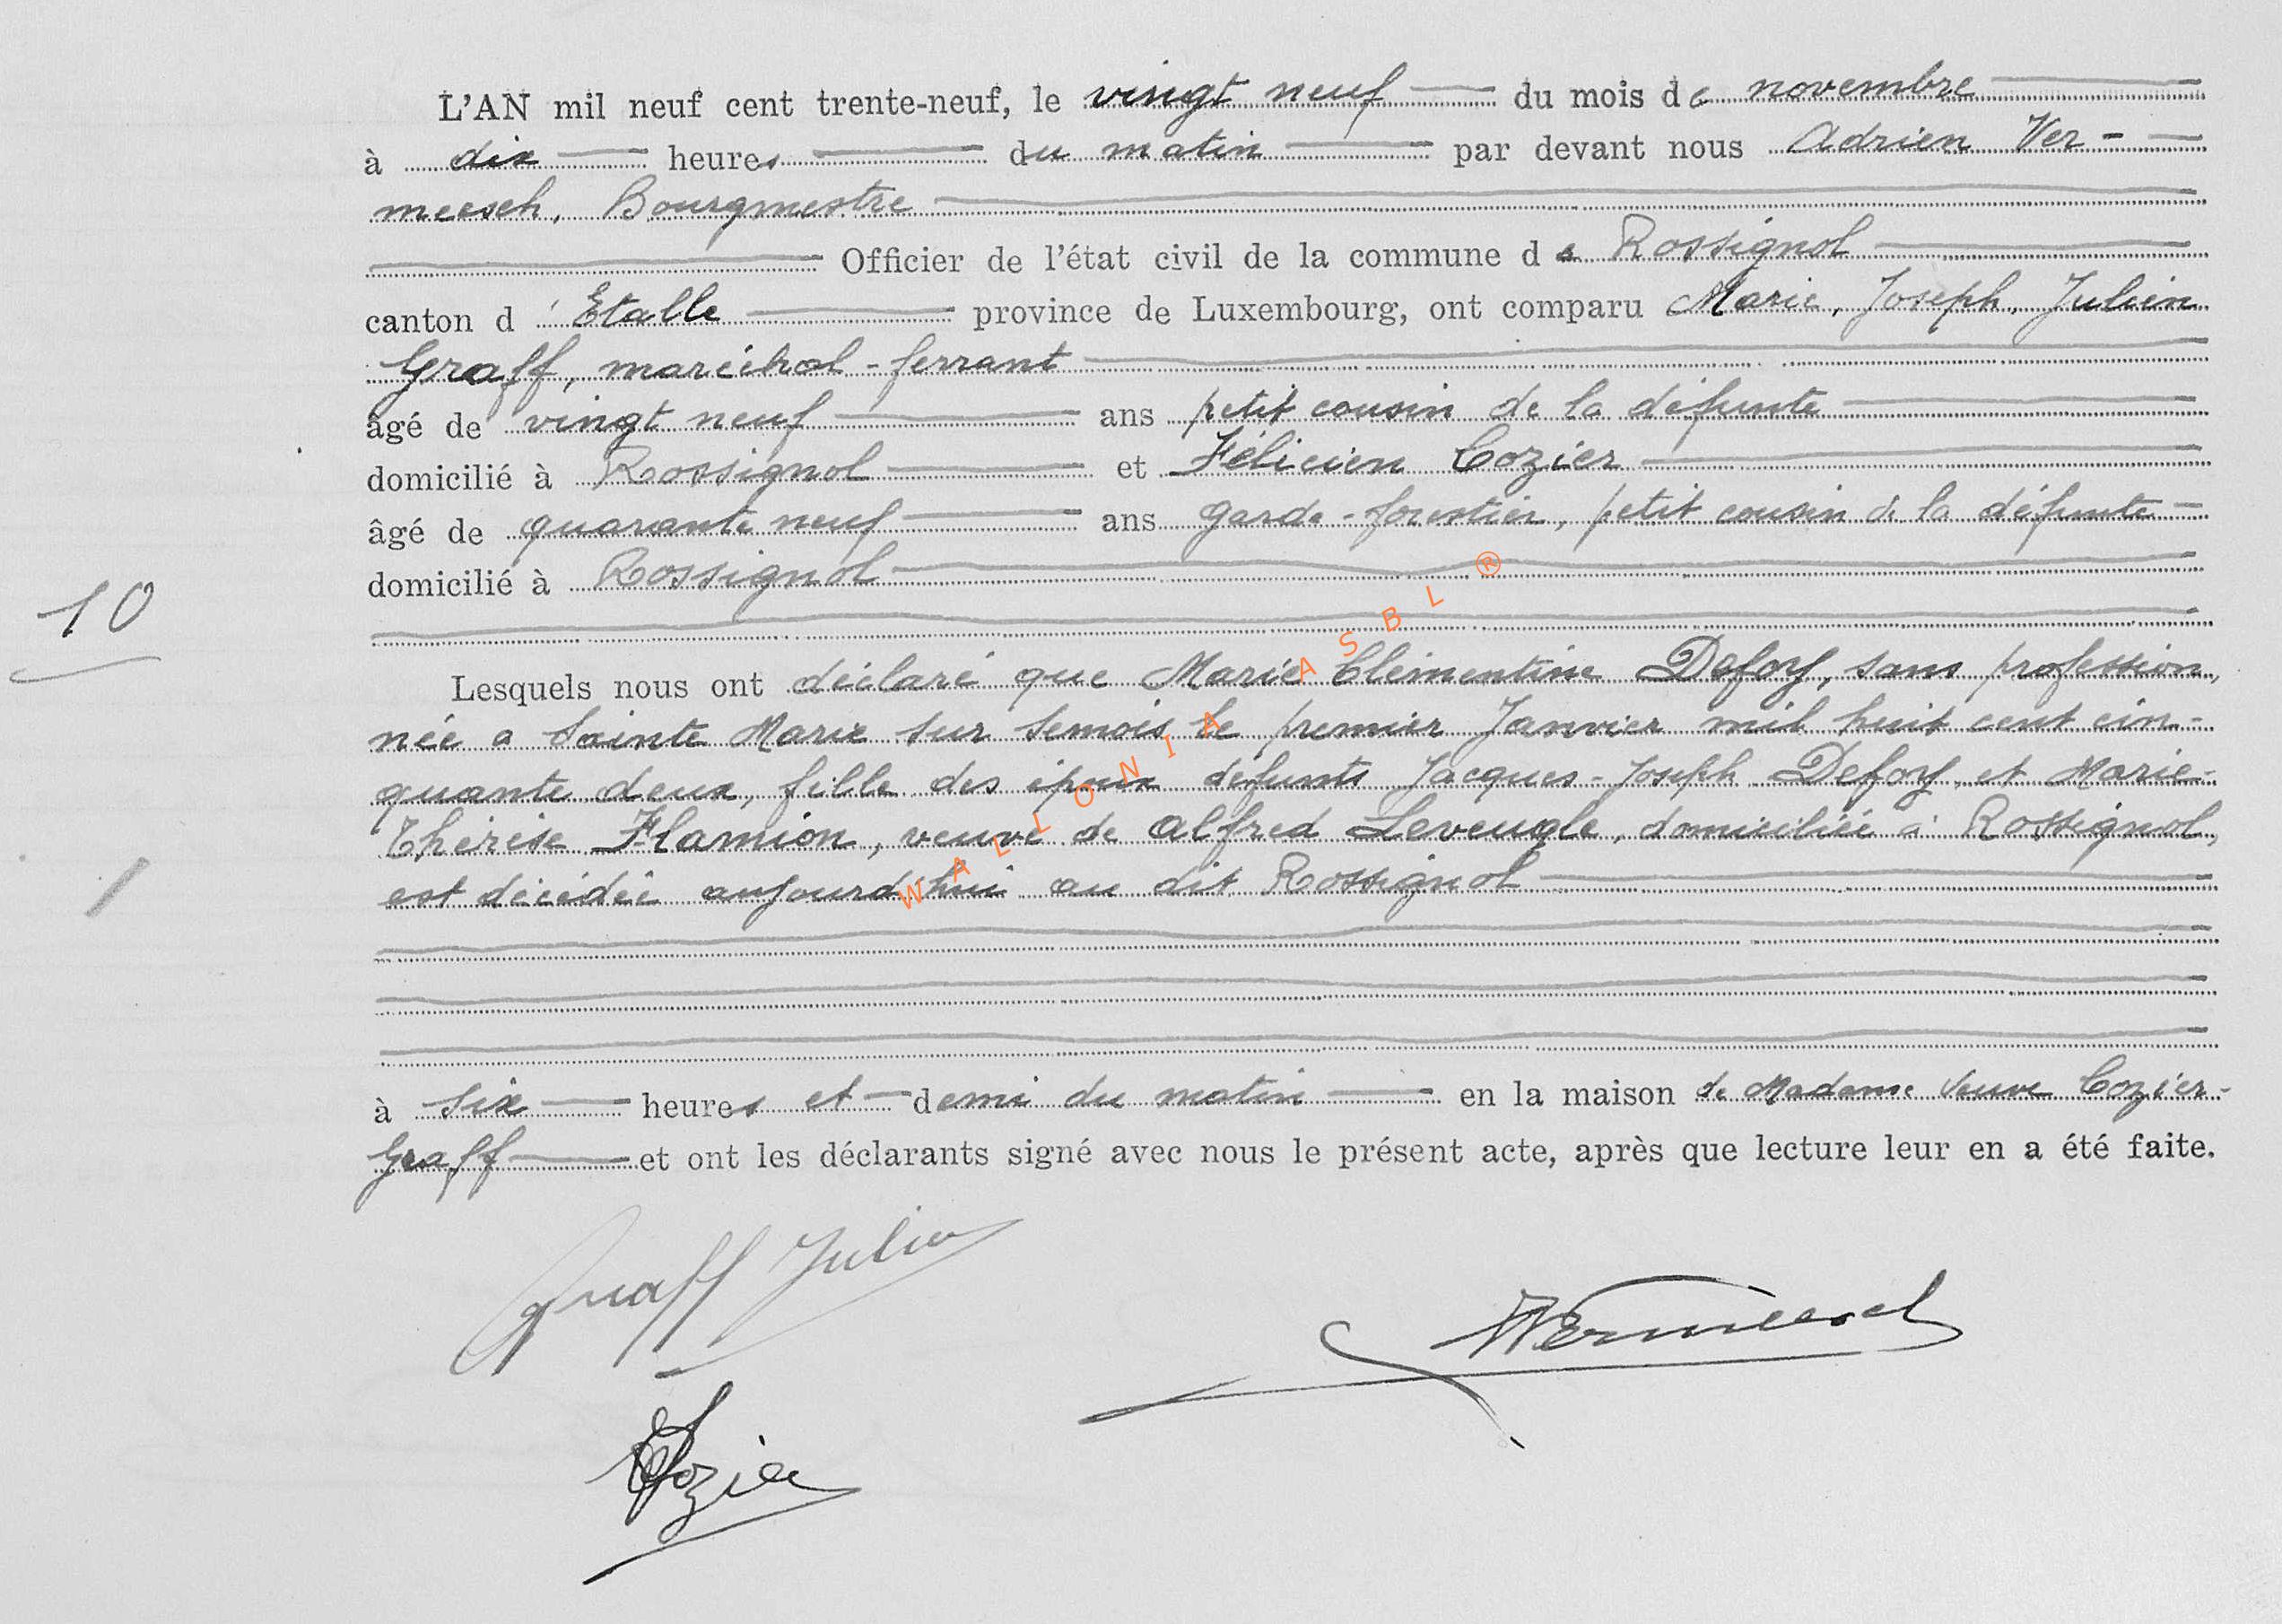 L'AN mil neuf cent trente-neuf, le vingt neuf du mois de novembre
à dix heures du matin par devant nous Adrien Ver-
meesch, Bourgmestre
Officier de l'état civil de la commune de Rossignol
canton d'Etalle province de Luxembourg, ont comparu Marie, Joseph, Julien
Graff, maréchal-ferrant
âgé de vingt neuf ans petit cousin de la défunte
domicilié à Rossignol et Félicien Cozier
âgé de quarante neuf ans garde-forestier, petit cousin de la défunte
domicilié à Rossignol
10
Lesquels nous ont déclaré que Marie Clémentine Defoy, sans profession,
née a Sainte Marie sur Semois le premier Janvier mil huit cent cin-
quante deux, fille des époux défunts Jacques-Joseph Defoy et Marie-
Thérèse Flamion, veuve de Alfred Leveugle, domiciliée à Rossignol,
est décédée aujourd'hui au dit Rossignol
à six heures et demi du matin en la maison de Madame Veuve Cozier-
Graff et ont les déclarants signé avec nous le présent acte, après que lecture leur en a été faite.
Graff Julien
Vermeesch
Cozier
WALLONIA ASBL ®